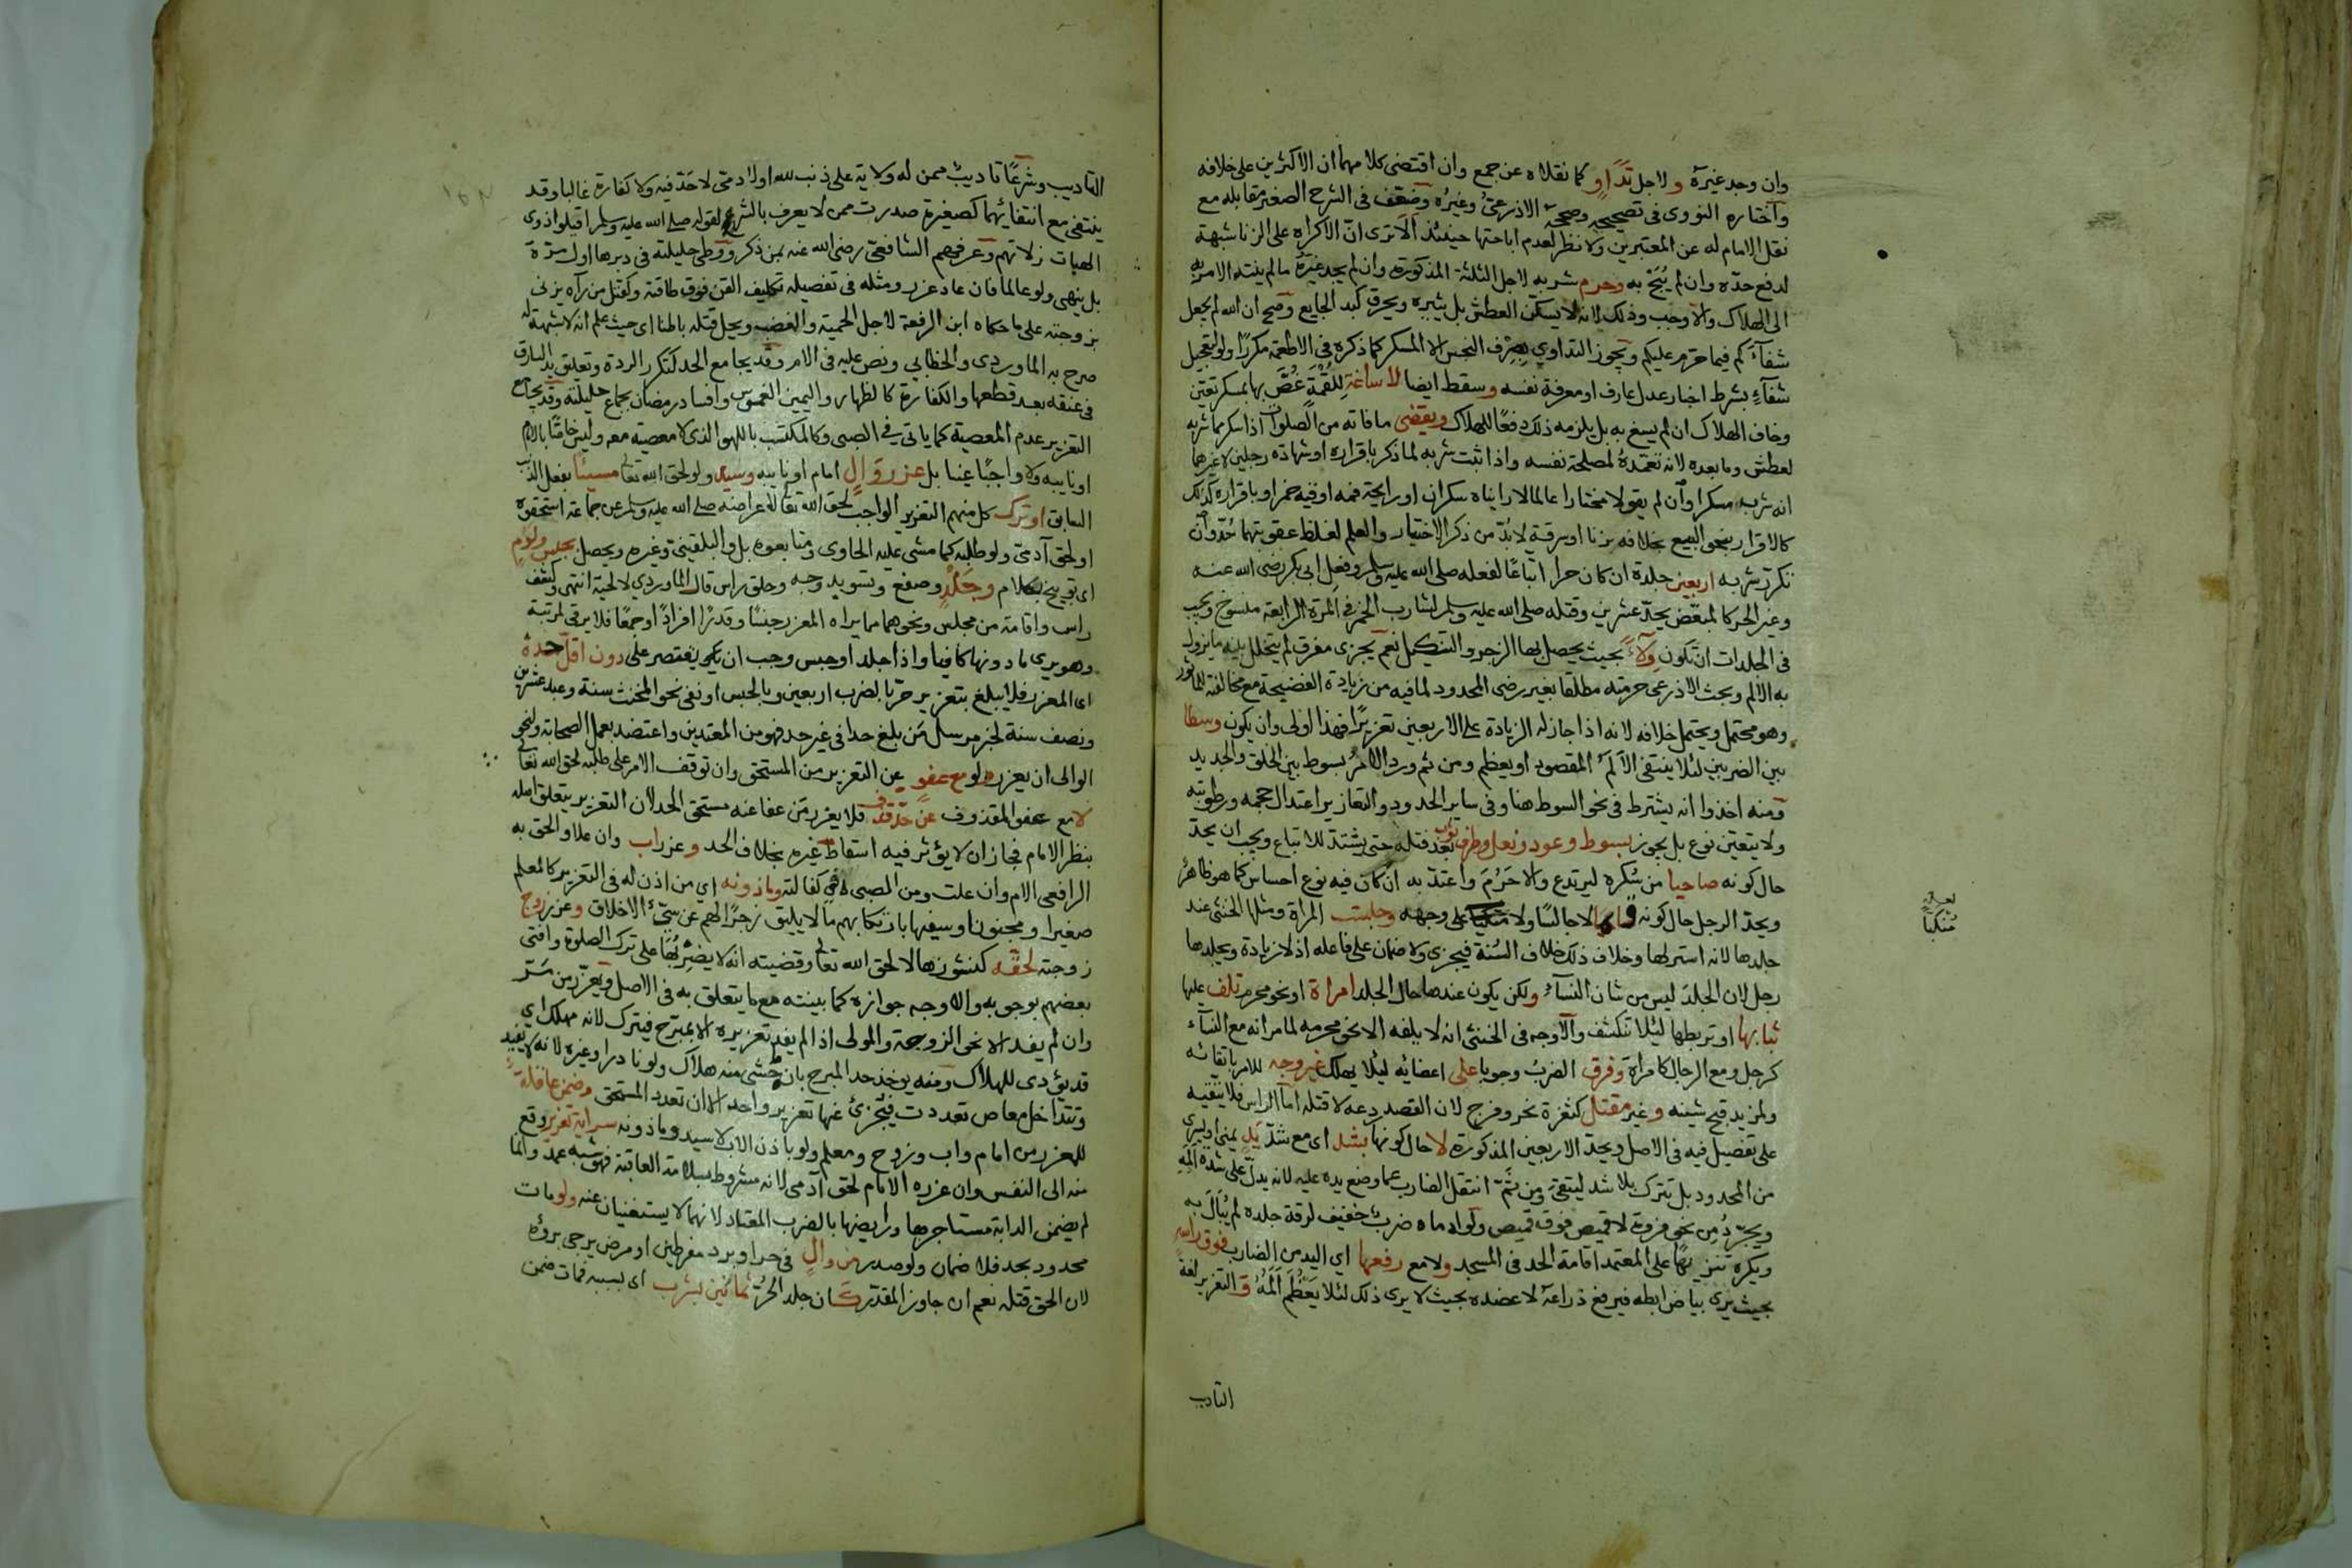 وان وجد غيره ولا لاجل تداو كما نقلاه عن جمع وان اقتضى كلامهما ان الاكثرين على خلافه
واختاره النووى فى تصحيحه وصححه الاذرعى وغيره وضعف فى الشرح الصغير مقابله مع
نقل الامام له عن المعتبرين ولا نظر لعدم اباحتها حينئذ الا ترى ان الاكراه على الزنا شبهة
لدفع حده وان لم يبح به وحرم شربه لاجل الثلثة المذكورة وان لم يجد غيره ما لم ينته الامر به
الى الهلاك والا وجب وذلك لانه لا يسكن العطش بل يثيره ويحرق كبد الجايع وصح ان الله لم يجعل
شفآءكم فيما حرم عليكم ويجوز التداوي بصرف النجس الا المسكر كما ذكره فى الاطعمة مكررا ولو لتعجيل
شفآء بشرط اخبار عدل عارف او معرفة نفسه وسقط ايضا لاساغة للقمة غص بها بمسكر تعين
وخاف الهلاك ان لم يسغ به بل يلزمه ذلك دفعا للهلاك ويقضى ما فاته من الصلوات اذا سكر بما شربه
لعطش وما بعده لانه تعمده لمصلحة نفسه واذا ثبت شربه لما ذكر باقراره او شهادة رجلين لا غيرهما
انه شرب مسكرا وان لم يقولا مختارا عالما لا رايناه سكران او رايحة فمه او قيه خمر او باقراره كذلك
كالاقرار بنحو البيع بخلافه بزنا او سرقة لا بد من ذكر الاختيار والعلم لغلظ عقوبتهما حد وان
تكرر شربه اربعين جلدة ان كان حرا اتباعا لفعله صلى الله عليه وسلم وفعل ابى بكر رضى الله عنه
وغير الحر كالمبعض يحد عشرين وقتله صلى الله عليه وسلم لشارب الخمر فى المرة الرابعة منسوخ ويجب
فى الجلدات ان تكون ولآء بحيث يحصل بها الزجر والتنكيل نعم يجزى مفرق لم يتخلل بينه ما يزول
به الالم وبحث الاذرعى حرمته مطلقا بغير رضى المحدود لما فيه من زيادة الفضيحة مع مخالفته للماثور
وهو محتمل ويحتمل خلافه لانه اذا جاز له الزيادة على الاربعين تعزيرا فهذا اولى وان يكون وسطا
بين الضربين لئلا ينتفى الالم المقصود او يعظم ومن ثم ورد الامر بسوط بين الخلق والجديد
ومنه اخذوا انه يشترط فى نحو السوط هنا وفى ساير الحدود والتعازير اعتدال حجمه ورطوبته
ولا يتعين نوع بل يجوز بسوط وعود ونعل وطرف ثوب بعد فتله حتى يشتد للاتباع ويجب ان يحد
حال كونه صاحيا من سكره ليرتدع والا حرم واعتد به ان كان فيه نوع احساس كما هو ظاهر
ويحد الرجل حال كونه قايما لا جالسا ولا على وجهه وجلست المراة ومثلها الخنثى عند
جلدها لانه استر لها وخلاف ذلك خلاف السنة فيجزى ولا ضمان على فاعله اذ لا زيادة ويجلدها
رجل لان الجلد ليس من شان النسآء ولكن يكون عندها حال الجلد امراة او نحو محرم تلف عليها
ثيابها او تربطها ليلا تنكشف والاوجه فى الخنثى انه لا يلفه الا نحو محرمه لما مر انه مع النسآء
كرجل ومع الرجال كامراة وفرق الضرب وجوبا على اعضائه ليلا يهلك غير وجه للامر باتقائه
ولمزيد قبح شينه وغير مقتل كثغرة نحر وفرج لان القصد ردعه لا قتله اما الراس فلا يتقيه
على تفصيل فيه فى الاصل ويحد الاربعين المذكورة لا حال كونها بشد اى مع شد يد يمنى او يسرى
من المحدود بل تترك بلا شد ليتقى ومن ثم انتقل الضارب عما وضع يده عليه لانه يدل على شدة المه
ويجرد من نحو فروة لا قميص فوق قميص ولو ادماه ضرب خفيف لرقة جلده لم يبال به
ويكره تنزيها على المعتمد اقامة الحد فى المسجد ولا مع رفعها اي اليد من الضارب فوق راسه
بحيث يرى بياض ابطه فيرفع ذراعه لا عضده بحيث لا يرى ذلك لئلا يعظم المه والتعزير لغة
التاديب
متكيا
التاديب وشرعا تاديب ممن له ولاية على ذنب لله او لادمى لا حد فيه ولا كفارة غالبا وقد
ينتفى مع انتفائهما كصغيرة صدرت ممن لا يعرف بالشر لقوله صلى الله عليه وسلم اقيلوا ذوى
الهيات زلاتهم وعرفهم الشافعى رضى الله عنه بمن ذكر ووطى حليلته فى دبرها اول مرة
بل ينهى ولو عالما فان عاد عزر ومثله فى تفصيله تكليف القن فوق طاقته وكقتل من رآه يزنى
بزوجته على ما حكاه ابن الرفعة لاجل الحمية والغضب ويحل قتله باطنا اى حيث علم انه لا شبهة له
صرح به الماوردى والخطابي ونص عليه فى الام وقد يجامع الحد كتكرر الردة وتعليق يد السارق
فى عنقه بعد قطعها والكفارة كالظهار واليمين الغموس وافساد رمضان بجماع حليلته وقد يجامع
التعزير عدم المعصية كما ياتى في الصبى وكالمكتسب باللهو الذى لا معصية معه وليس خاصا بالامام
او نايبه ولا واجبا عينا بل عزر وال امام او نايبه وسيد ولو لحق الله تعالى مسيئا بفعل الذنب
السابق او ترك كل منهم التعزير الواجب لحق الله تعالى لاعراضه صلى الله عليه وسلم عن جماعة استحقوه
او لحق آدمى ولو طلبه كما مشى عليه الحاوى ومتابعوه بل والبلقينى وغيره ويحصل بحبس ولوم
اى توبيخ بكلام وجلد وصفع وتسويد وجه وحلق راس قال الماوردي لا لحية انتهى وكشف
راس واقامة من مجلس ونحوهما مما يراه المعزر جنسا وقدرا افرادا او جمعا فلا يرقى لمرتبة
وهو يرى ما دونها كافيا واذا جلد او حبس وجب ان يقتصر على دون اقل حده
اى المعزر فلا يبلغ بتعزير حر بالضرب اربعين وبالحبس او نفى نحو المخنث سنة وعبد عشرين
ونصف سنة لخبر مرسل من بلغ حدا فى غير حد فهو من المعتدين واعتضد بعمل الصحابة ولنحو
الوالى ان يعزر ولو مع عفو عن التعزير من المستحق وان توقف الامر على طلبه لحق الله تعالى
لا مع عفو المقذوف عن حد قذف فلا يعزر من عفا عنه مستحق الحد لان التعزير يتعلق اصله
بنظر الامام فجاز ان لا يؤثر فيه اسقاط غيره بخلاف الحد وعزر اب وان علا والحق به
الرافعى الام وان علت ومن الصبى فى كفالته وماذونه اي من اذن له فى التعزير كالمعلم
صغيرا ومجنونا وسفيها بارتكابهم ما لا يليق زجرا لهم عن سيئ الاخلاق وعزر زوج
زوجته لحقه كنشوزها لا لحق الله تعالى وقضيته انه لا يضربها على ترك الصلوة وافتى
بعضهم بوجوبه والاوجه جوازه كما بينته مع ما يتعلق به فى الاصل ويعزر من مر
وان لم يفد الا نحو الزوجة والمولى اذا لم يفد تعزيره الا بمبرح فيترك لانه مهلك اي
قد يؤدى للهلاك ومنه يوخذ حد المبرح بان خشى منه هلاك ولو نادرا وغيره لانه لا يفيد
وتتداخل معاص تعددت فيجزئ عنها تعزير واحد الا ان تعدد المستحق وضمن عاقلة
للمعزر من امام واب وزوج ومعلم ولو باذن الاب لا سيد وماذونه سراية تعزير وقع
منه الى النفس وان عزره الامام لحق آدمى لانه مشروط بسلامة العاقبة فهو شبه عمد وانما
لم يضمن الدابة مستاجرها ورايضها بالضرب المعتاد لانهما لا يستغنيان عنه ولو مات
محدود بحد فلا ضمان ولو صدر من وال فى حر او برد مفرطين او مرض يرجى برؤه
لان الحق قتله نعم ان جاوز المقدر كان جلد الحر ثمانين بشرب اى بسببه فمات ضمن